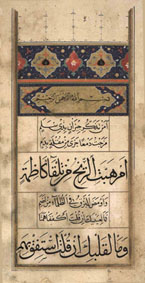 بسم الله الرحمن الرحيم
امن تذكر جيران بذي سلم
مزجت دمعا جرى من مقلة بدم
ام هبت الريح من تلقاء كاظمة
واومض البرق في الظلماء من اضم
فما لعينيك ان قلت اكففا همتا
وما لقلبك ان قلت استفق يهم